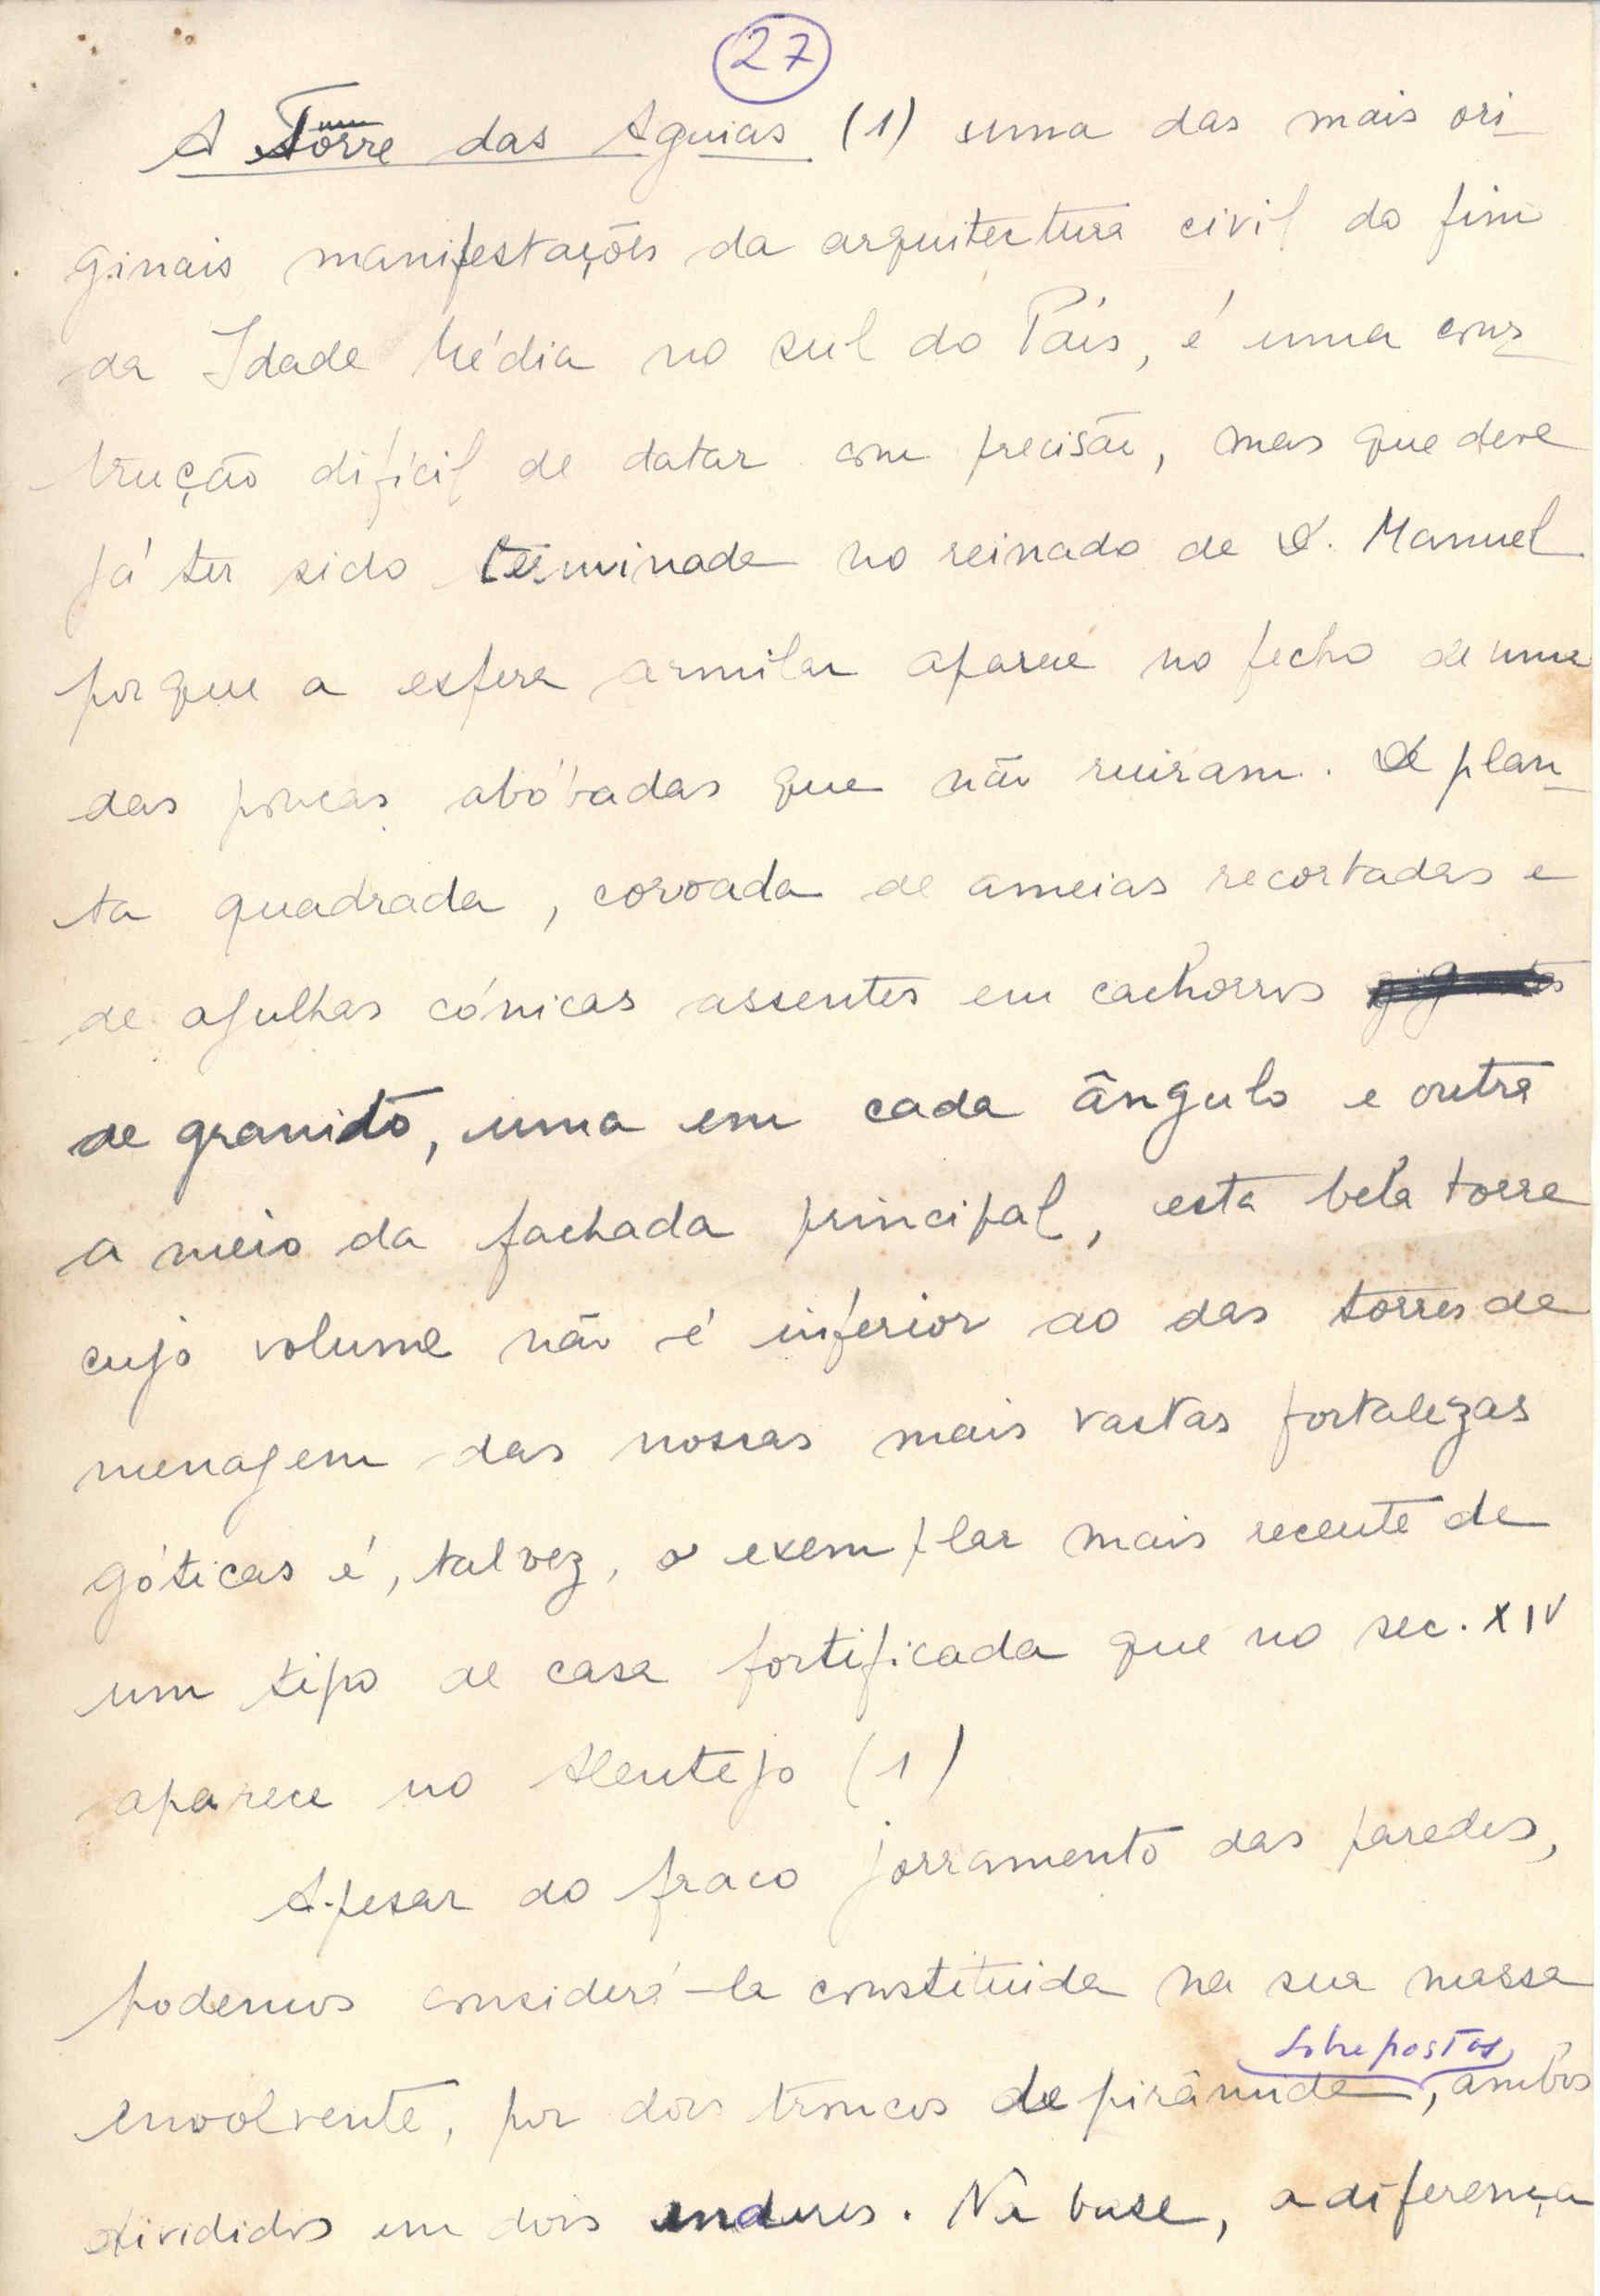 27
A Torre das Aguias (1) uma das mais ori
ginais manifestações da arquitectura civil do fim
da Idade Média no sul do País, é uma cons
trução difícil de datar com precisão, mas que deve
já ter sido terminada no reinado de D. Manuel
porque a esfera armilar aparece no fecho de uma
das poucas abóbadas que não ruiram. De plan-
ta quadrada, coroada de ameias recortadas e
de agulhas cónicas assentes em cachorros
de granito, uma em cada ângulo e outra
a meio da fachada principal, esta bela torre
cujo volume não é inferior ao das torres de
menagem das nossas mais vastas fortalezas
góticas é, talvez, o exemplar mais recente de
um tipo de casa fortificada que no sec. XIV
aparece no Alentejo (1)
Apesar do fraco jorramento das paredes,
podemos considerá-la constituida na sua massa
sobrepostos
envolvente, por dois troncos de pirâmide, ambos
divididos em dois andares. Na base, a diferença